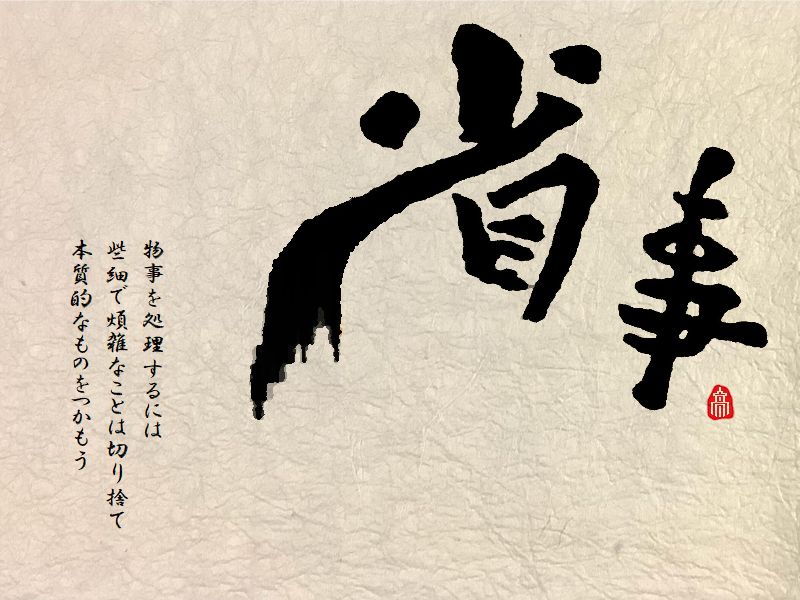 省事
物事を処理するには
些細で煩雑なことは切り捨て
本質的なものをつかもう
高